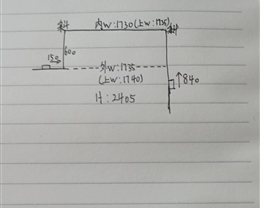 斜 内W:1730(上W:1735) 斜
600
150
外W:1735
(上W:1740)
↑840
H:2405